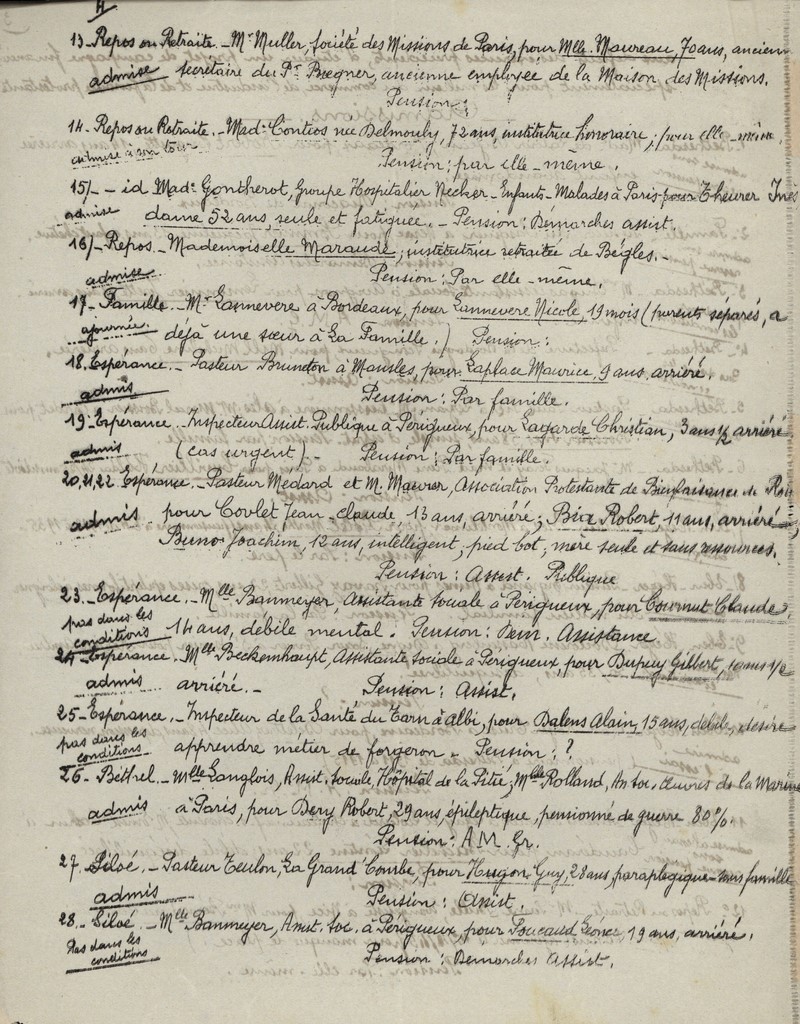 13-Repos ou Retraite.- Mr Muller, Société des Missions de Paris, pour Mlle Maureau, 70 ans, ancienn
admise secrétaire du Pr Bregner, ancienne employée de la Maison des Missions.
Pension:
14.- Repos ou Retraite.- Made Contios née Delmouly, 72 ans, institutrice honoraire, pour elle-même,
admise à son tour Pension: par elle-même.
15/- id Made Gontherot, Groupe Hospitalier Necker-Enfants-Malades à Paris pour Theurer Inès
admise dame 52 ans, seule et fatiguée.- Pension: Démarches assist.
16/- Repos.- Mademoiselle Maraude, institutrice retraitée de Bègles.-
admise. Pension: Par elle-même.
17.- Famille.- Mr Lannevere à Bordeaux, pour Lannevere Nicole, 19 mois (parents séparés, a
ajournée. déjà une sœur à La Famille.) Pension:
18. Espérance.- Pasteur Bruneton à Mansles, pour Laplace Maurice, 9 ans arriéré.
admis Pension: Par famille.
19- Espérance.- Inspecteur Assist. Publique à Périgueux, pour Lagarde Christian, 3 ans ½ arriéré
admis (cas urgent).- Pension: Par famille.
20,21,22 Espérance.- Pasteur Médard et M. Maurer, Association Protestante de Bienfaisance de
admis pour Covlet Jean-claude, 13 ans, arriéré; Bix Robert, 11 ans, arriéré;
Buno Joachim, 12 ans, intelligent, pied bot, mère seule et sans ressources.
Pension: Assist. Publique
23.- Espérance.- Mlle Banmeyer, Assistante Sociale à Périgueux, pour Cournut Claude,
pas dans les
conditions 14 ans, débile mental. Pension: Dem. Assistance
24- Espérance. Mlle Beckenhaupt, Assistante Sociale à Périgueux, pour Dupuy Gilbert, ans ½
admis arriéré.- Pension: Assist.
25- Espérance.- Inspecteur de la Santé du Tarn à Albi, pour Dalens Alain, 15 ans, débile, désire
pas dans les
conditions apprendre métier de forgeron. Pension: ?
26- Béthel.- Mlle Langlois, Assist. Sociale, Hôpital de la Pitié; Mlle Rolland, As. Soc. Œuvres de la Marine
admis à Paris, pour Dery Robert, 29 ans, épileptique, pensionné de guerre 80%.
Pension: A.M. Gr.
27. Siloé.- Pasteur Teulon, La Grand'Combe, pour Hugon Guy, 28 ans, paraplégique-sans famille
admis Pension: Assist.
28.- Siloé.- Mlle Banmeyer, Assist. Soc. à Périgueux, pour Foucaud, 19 ans, arriéré.
Pas dans les
conditions Pension: Démarches Assist.